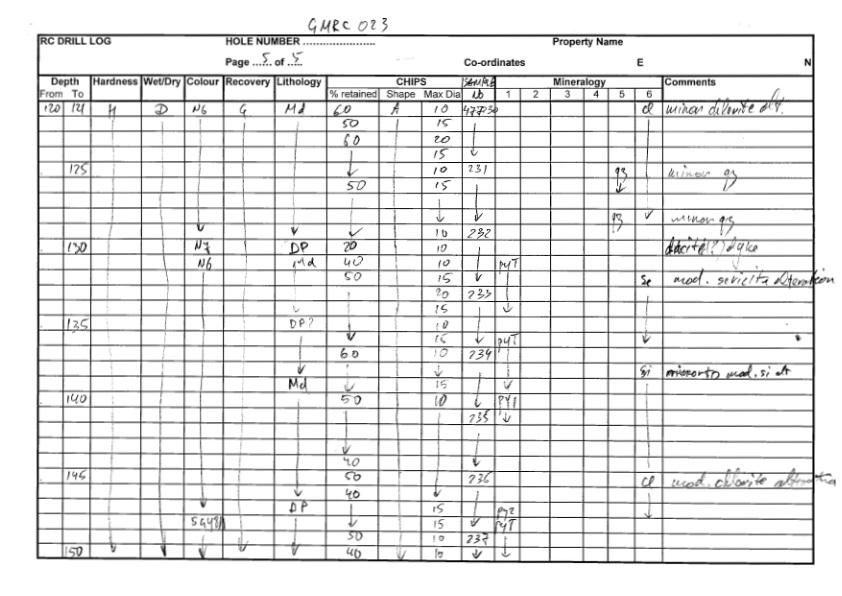 GMRC 023
RC DRILL LOG HOLE NUMBER ........................ Property Name
Page ...5.. of ..5.. Co-ordinates E N
Depth Hardness Wet/Dry Colour Recovery Lithology CHIPS SAMPLE Mineralogy Comments
From To % retained Shape Max Dia No 1 2 3 4 5 6
120 121 H D N6 G Md 60 A 10 477230 cl minor chlorite alt.
50 15
60 20
15
125 10 231 qz minor qz
50 15
qz minor qz
10 232
130 N7 DP 20 10 dacite(?) dyke
N6 Md 40 10 pyT
50 15 Se mod. sericite alteration
20 233
15
135 DP? 10
15 pyT
60 10 234
Si mod. si alt
Md 15
140 50 10 py1
235
40
145 50 236 cl mod. chlorite alteration
40
DP 15 py2
5GY8/1 15 pyT
50 10 237
150 40 10